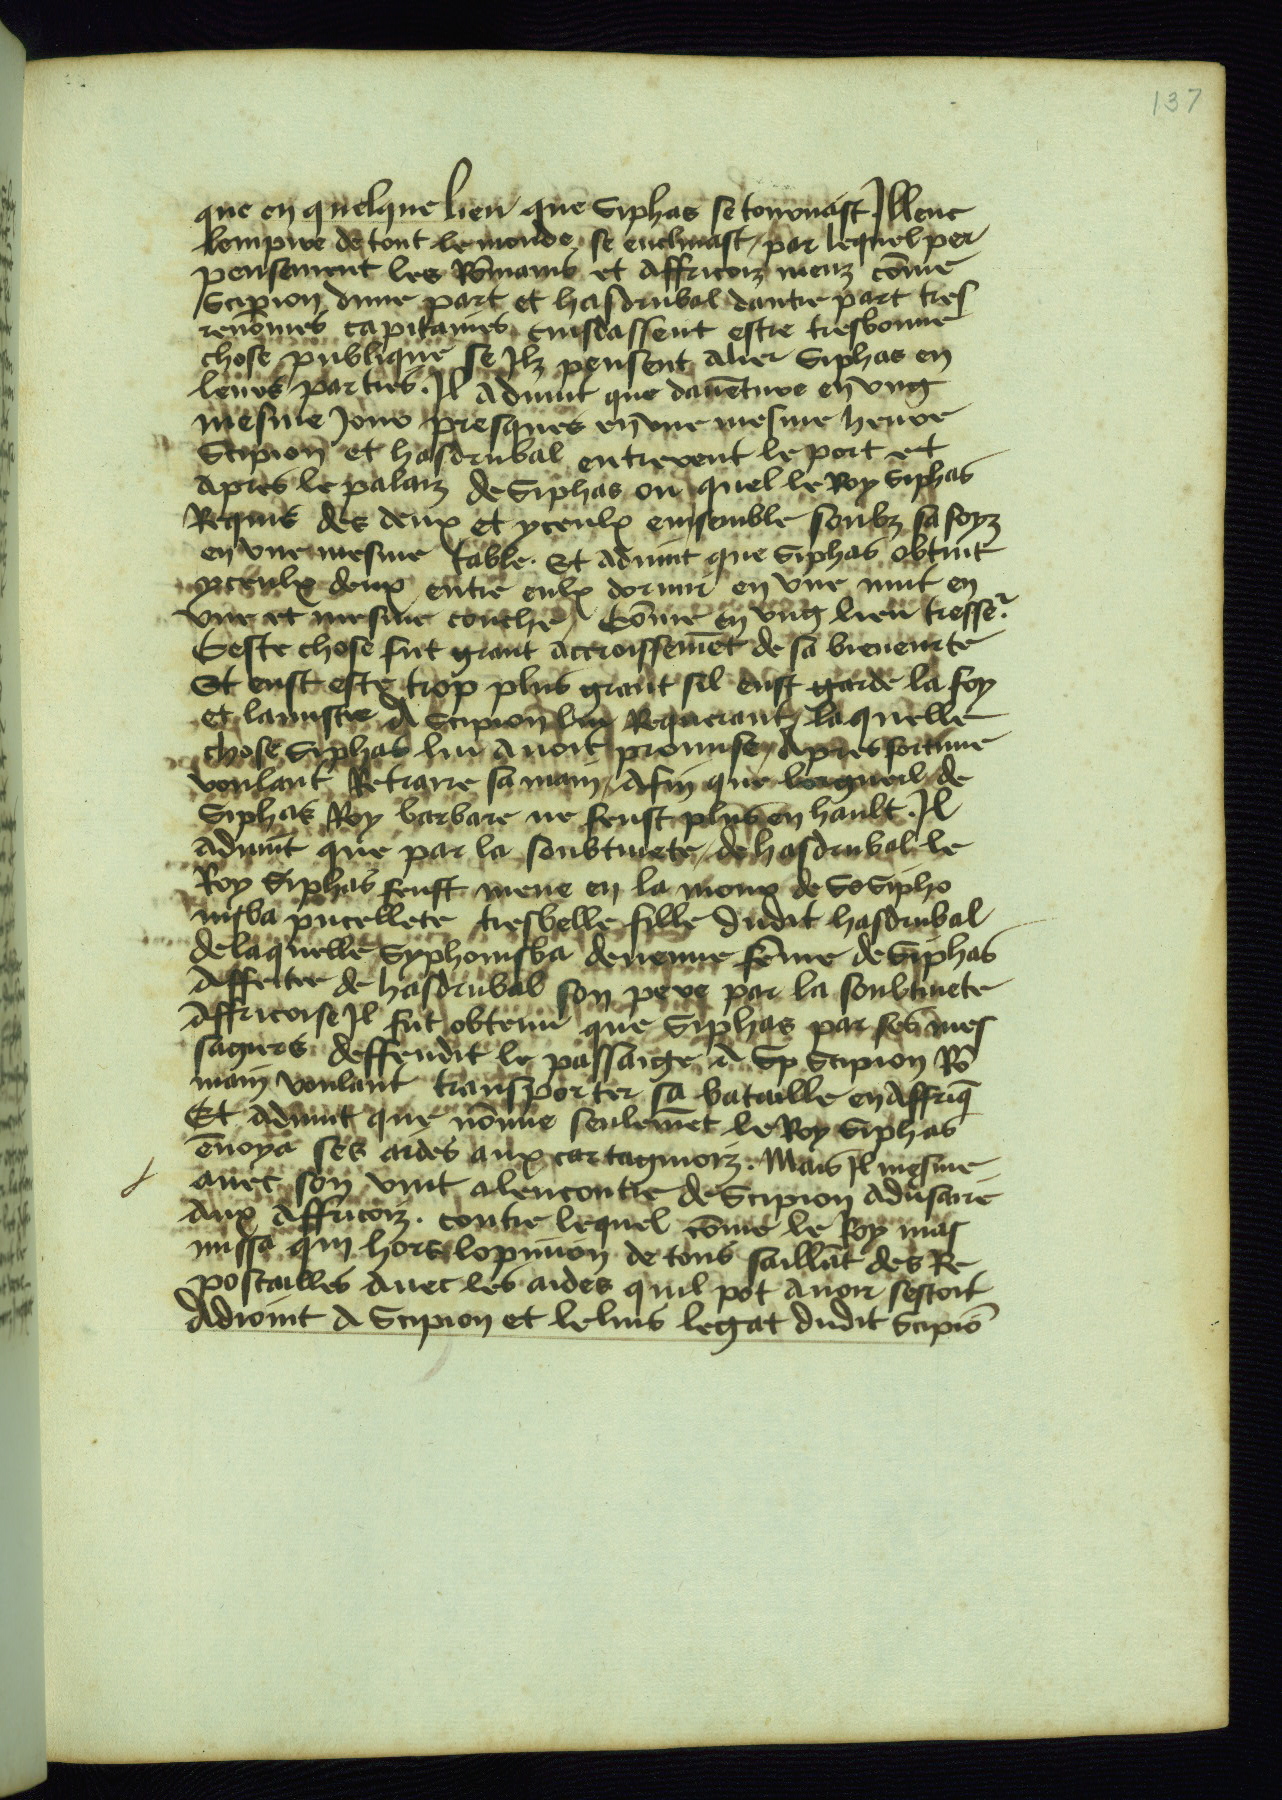 137
que en quelque lieu que Siphas se tournast Illenc
lempire de tout le monde se enclinast / par lequel per
pensement les Rōmains et Affricoiz meuz cōme
Scipion dune part et hasdrubal dautre part tres
renōmes capitaines cuidassent estre tresbonne
chose publique se Ilz pensent avoir Siphas en
leurs parties. Il advint que davēture en ung
mesme Jour presques en une mesme heure
Scipion et hasdrubal entrerent le port et
apres le palaiz de Siphas ou quel le Roy Siphas
Requis des deux et yceulx ensemble soubz sa foyz
en une mesme table. Et advint que Siphas obtint
yceulx deux entre eulx dormir en une nuit en
une et mesme couche / Cōme en ung lieu tresse.
Ceste chose fut grant accroissemēt de sa bieneurte
Et eust este trop plus grant sil eust garde la foy
et lamistie A Scipion lui Requerant / laquelle
chose Siphas lui avoit promise / Apres fortune
voulant Retraire sa main / Afin que lorgueil de
Siphas Roy barbare ne feust plus en hault. Il
advint que par la soubtivete / de hasdrubal le
Roy Siphas feust mene en la mour de So Sipho
nisba pucellete tresbelle fille dudit hasdrubal
de laquelle Syphonisba devenue fēme de Siphas
Affettee de hasdrubal son pere par la soubtivete
Affricoise Il fut obtenu que Siphas par ses mes
sagiers deffendit le passaige A Sp Scipion Rō
main voulant transporter sa bataille en Affriq̄
Et advint que nōmie seulemēt le Roy Siphas
ēnoya ses aides aux cartaginoiz. Mais Il mesme
avec son vint alencontre de Scipion Adusaire
aux Affricoiz. contre lequel cōme le Roy mas
nissa qui hors lopinion de tous saillāt des Re
postailles avec les aides quil pot avoir sestoit
Adioint A Scipion et lelius legat dudit Scipiō